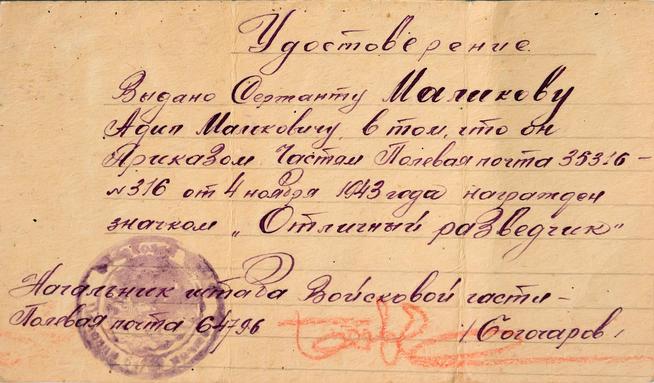 Удостоверение
Выдано Сержанту Маликову
Адип Маликовичу, в том, что он
Приказом Частям Полевая почта 35316 -
№316 от 4 ноября 1943 года награжден
значком „Отличный разведчик"
Начальник штаба Войсковой части -
Полевая почта 64796 / Согочаров /